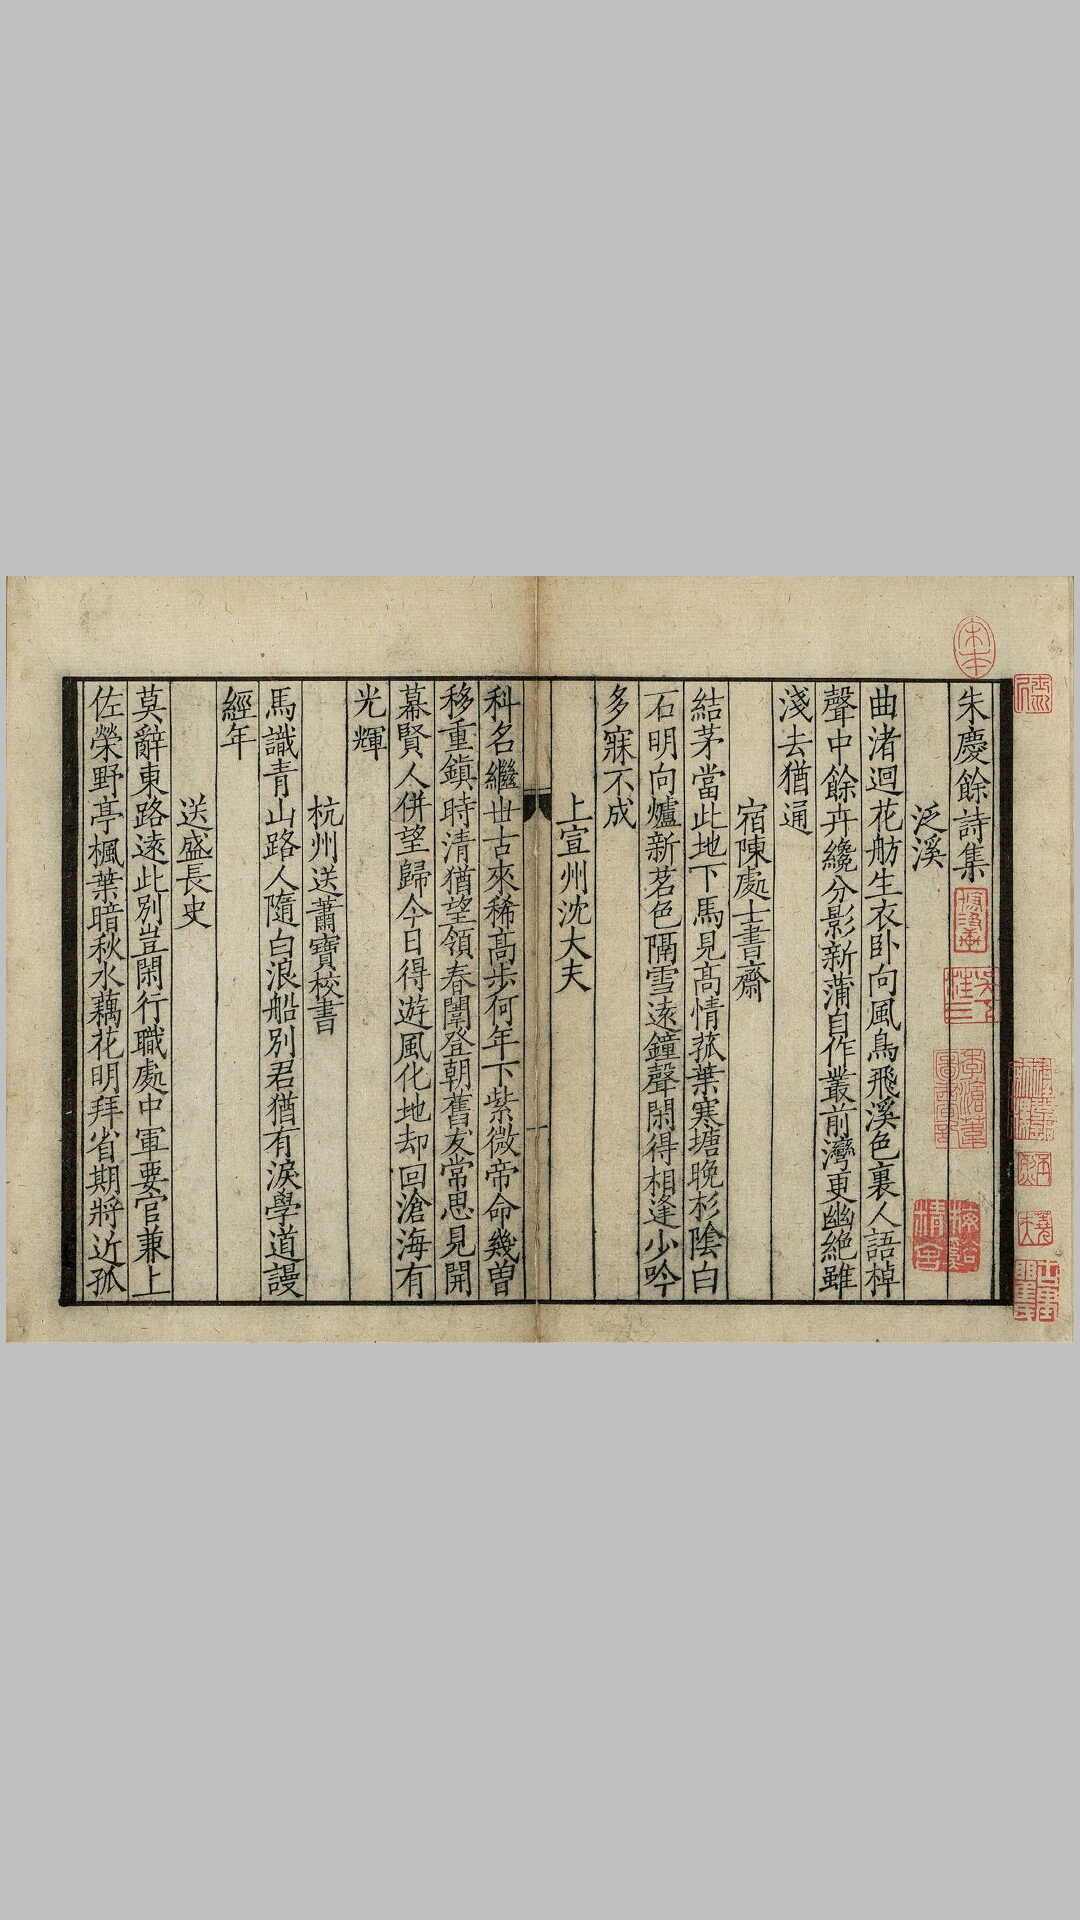 朱慶餘詩集
泛溪
曲渚迴花舫生衣卧向風鳥飛溪色裏人語棹
聲中餘卉纔分影新蒲自作叢前灣更幽絶雖
淺去猶通
宿陳處士書齋
結茅當此地下馬見髙情菰葉寒塘晚杉陰白
石明向爐新茗色隔雪遠鐘聲閑得相逢少吟
多寐不成
上宣州沈大夫
科名繼世古來稀髙步何年下紫微帝命幾曽
移重鎮時清猶望領春闈登朝舊友常思見開
幕賢人併望歸今日得遊風化地却回滄海有
光輝
杭州送蕭寶校書
馬識青山路人隨白浪船別君猶有淚學道謾
經年
送盛長史
莫辭東路遠此別豈閑行職處中軍要官兼上
佐榮野亭楓葉暗秋水藕花明拜省期將近孤
宋本